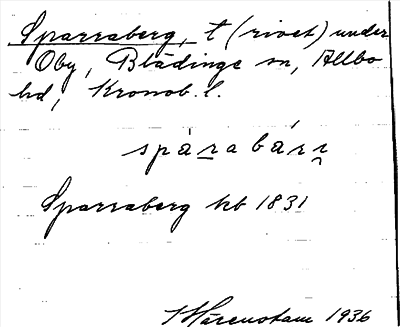 Sparraberg, t (rivet) under
Oby, Blädinge sn, Allbo
hd, Kronob. l.
spàrabári
Sparraberg kb 1831
Härenstam 1936